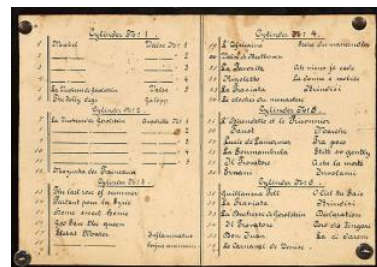 Cylinder No: 1.
1 Mabel Valse No: 1
2 — — 2
3 — — 3
4 — — 4
5 La Duchesse de Gerolstein Valse 3
6 The Jolly dogs Galopp
Cylinder No: 2.
7 La Duchesse de Gerolstein Quadrille No: 1
— — 2
— — 3
— — 4
— — 5
12 Mazurka des Traineaux
Cylinder No: 3.
13 The last rose of summer
14 Partant pour la Syrie
15 Home sweet home
16 God save the queen
17 Stabat Mater Inflammatus
Cylinder No: 4.
19 L'Africaine
20
21 La Favorita Ah mio fede
22 Rigoletto La donna è mobile
23 La Traviata Brindisi
24 La cloches du monastère
Cylinder No: 5.
Faust Marthe
Lucia de Lammermoor Fra poco
La Sonnambula Still so gently
Il Trovatore A che la morte
30 Ernani Involami
Cylinder No: 6.
31 Guillaume Tell
La Traviata Brindisi
La Duchesse de Gerolstein Déclaration
Il Trovatore
Don Juan La ci darem
Le Carnaval de Venise.